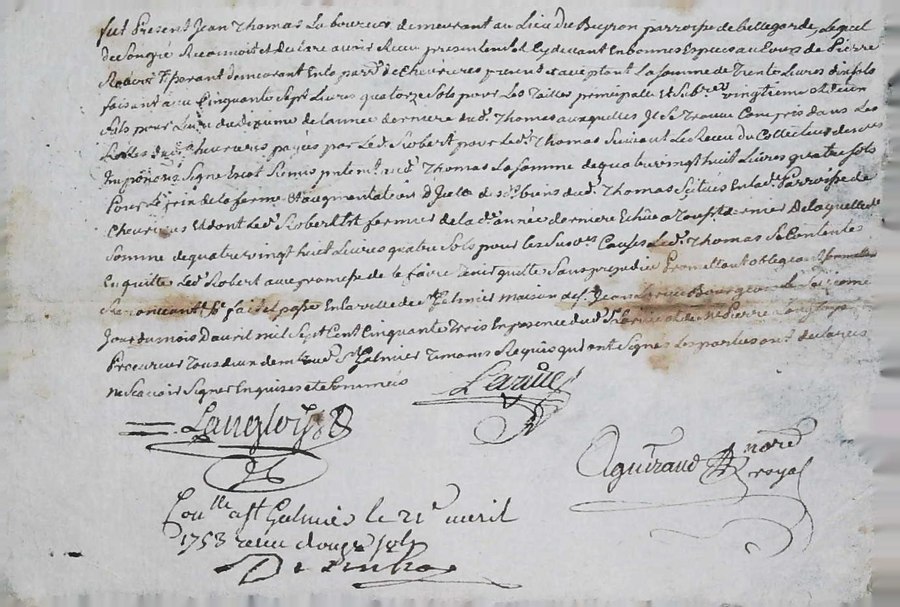 fut Present Jean Thomas Laboureur demeurant au Lieu du Beyron parroisse de bellegarde, Lequel
de Son gré Reconnoit et declare avoir Receu presentem.t et Cy devant En bonnes Especes au Cours de Pierre
Robert demeurant En la parr.e de Chevrieres present et aceptant La somme de Trente Livres dix sols
faisant avec Cinquante Sept Livres quatorze Sols pour Les Tailles principalle et vingtieme et deux
sols pour Livre du dixieme de L'année derniere dud. Thomas auxquelles Il Se Trouve Compris dans Les
Rolles dud. Chevrieres payés par Led. Robert pour Led. Thomas Suivant Le Receu du Collecteur des
Impositions Signé Thomas La somme de quatre vingt huit Livres quatre sols
Pour Le prix de la ferme et augmentation d'Icelle des biens dud. Thomas Scitués En lad. Parroisse de
Chevrieres Et dont Led. Robert Est fermier de lad. année derniere Echue a Touss.t dernier De laquelle
Somme de quatre vingt huit Livres quatre Sols pour les Susd. Causes Led. Thomas Se Contente
En quitte Led. Robert avec promesse de le faire Tenir quitte Sans prejudice Promettant obligeant
Renonçant fait et passé En la ville de S.t Galmier maison de S.r Jean Larüe Bourgeois
Jour du mois D'avril mil Sept Cent Cinquante Trois En presence dud. S.r Larüe et de M.e Pierre Langlois
Procureur Tous deux dem.t aud. S.t Galmier Temoins Requis qui ont Signés Les parties ont declarées
ne Scavoir Signer Enquises et Sommées
Larüe
Langlois
Aguiraud no.re
royal
Con.lle a S.t Galmier le 21.e avril
1753 receu douze sols